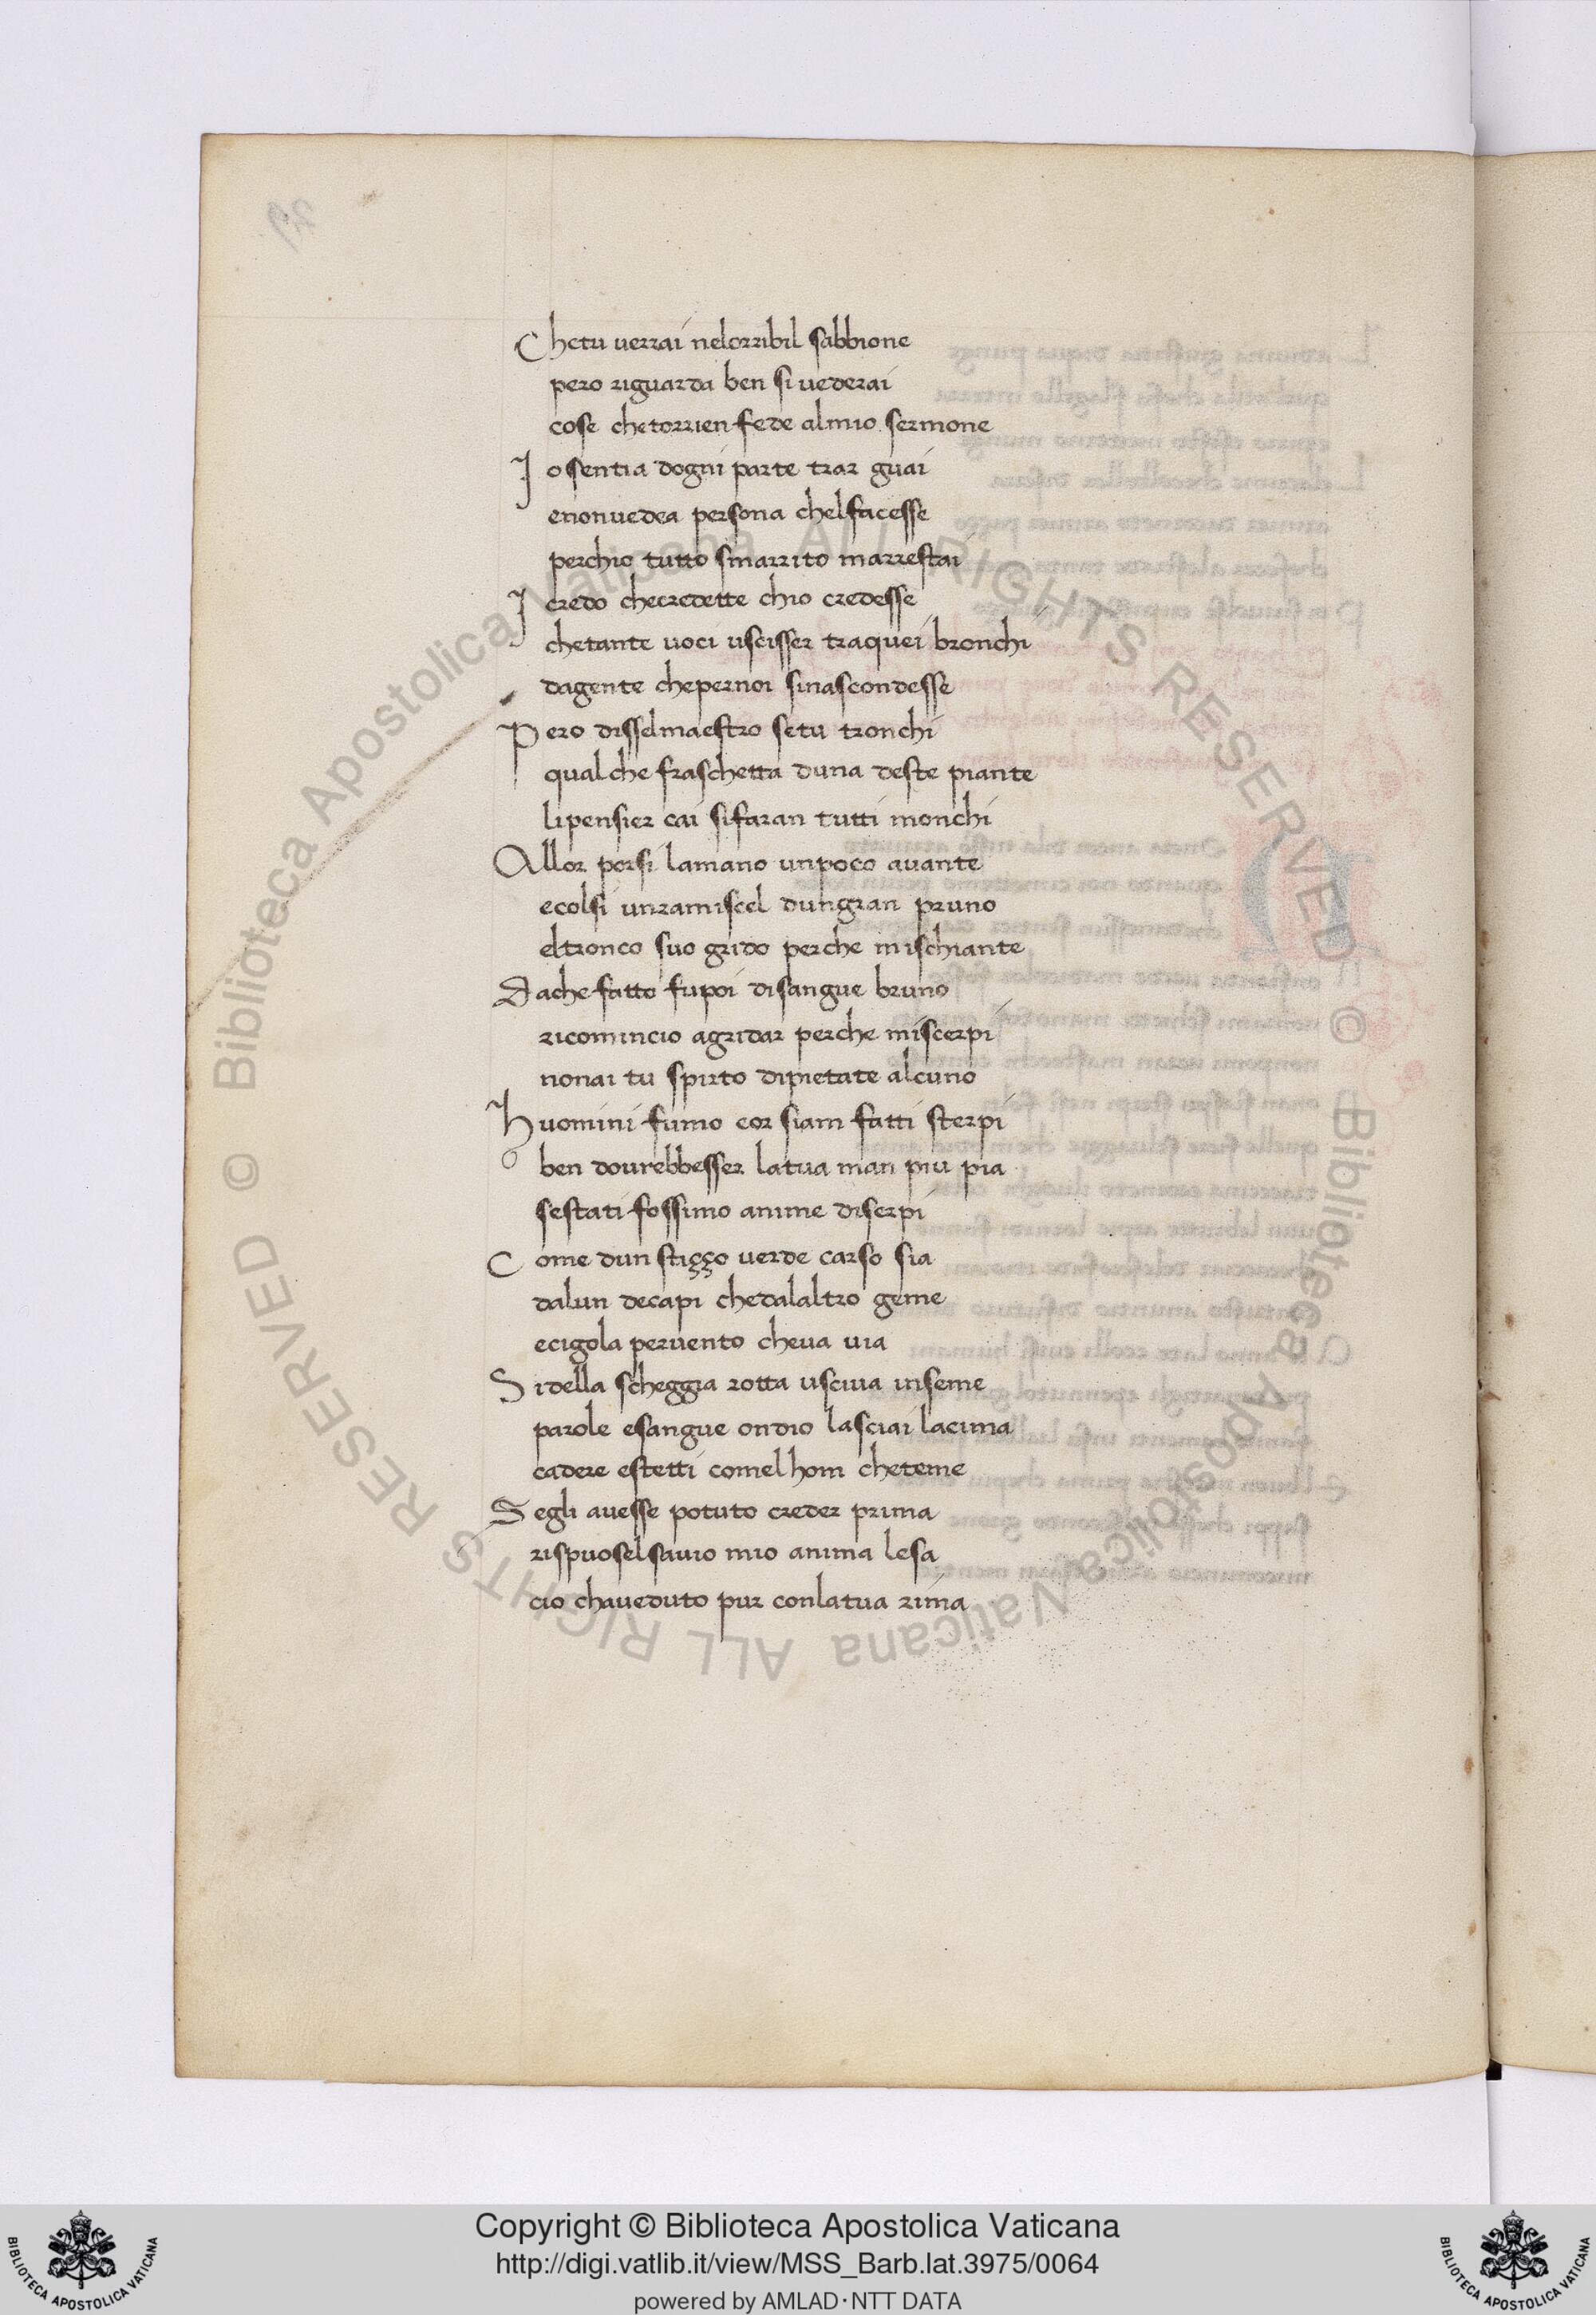 Chetu verrai nelorribil sabbione
pero riguarda ben si vederai
cose chetorrien fede almio sermone
Io sentia dogni parte trar guai
enonvedea persona chelfacesse
perchio tutto smarrito marrestai
I credo checredette chio credesse
chetante voci uscisser traquei bronchi
dagente chepernoi sinascondesse
Pero disselmaestro setu tronchi
qualche fraschetta duna deste piante
lipensier cai sifaran tutti monchi
Allor porsi lamano unpoco avante
ecolsi unramiscel dungran pruno
eltronco suo grido perche mischiante
Dache fatto fupoi disangue bruno
ricomincio agridar perche miscerpi
nonai tu spirto dipietate alcuno
Huomini fumo eor siam fatti sterpi
ben dovrebbesser latua man piu pia
sestati fossimo anime diserpi
Come dun stiçço verde carso sia
dalun decapi chedalaltro geme
ecigola pervento cheva via
Sidella scheggia rotta usciva inseme
parole esangue ondio lasciai lacima
cadere estetti comelhom cheteme
Segli avesse potuto creder prima
rispuoselsavio mio anima lesa
cio chaveduto pur conlatua rima
© Biblioteca Apostolica Vaticana ALL RIGHTS RESERVED © Biblioteca Apostolica Vaticana ALL RIGHTS RESERVED
Copyright © Biblioteca Apostolica Vaticana
http://digi.vatlib.it/view/MSS_Barb.lat.3975/0064
powered by AMLAD·NTT DATA
BIBLIOTECA APOSTOLICA VATICANA
BIBLIOTECA APOSTOLICA VATICANA